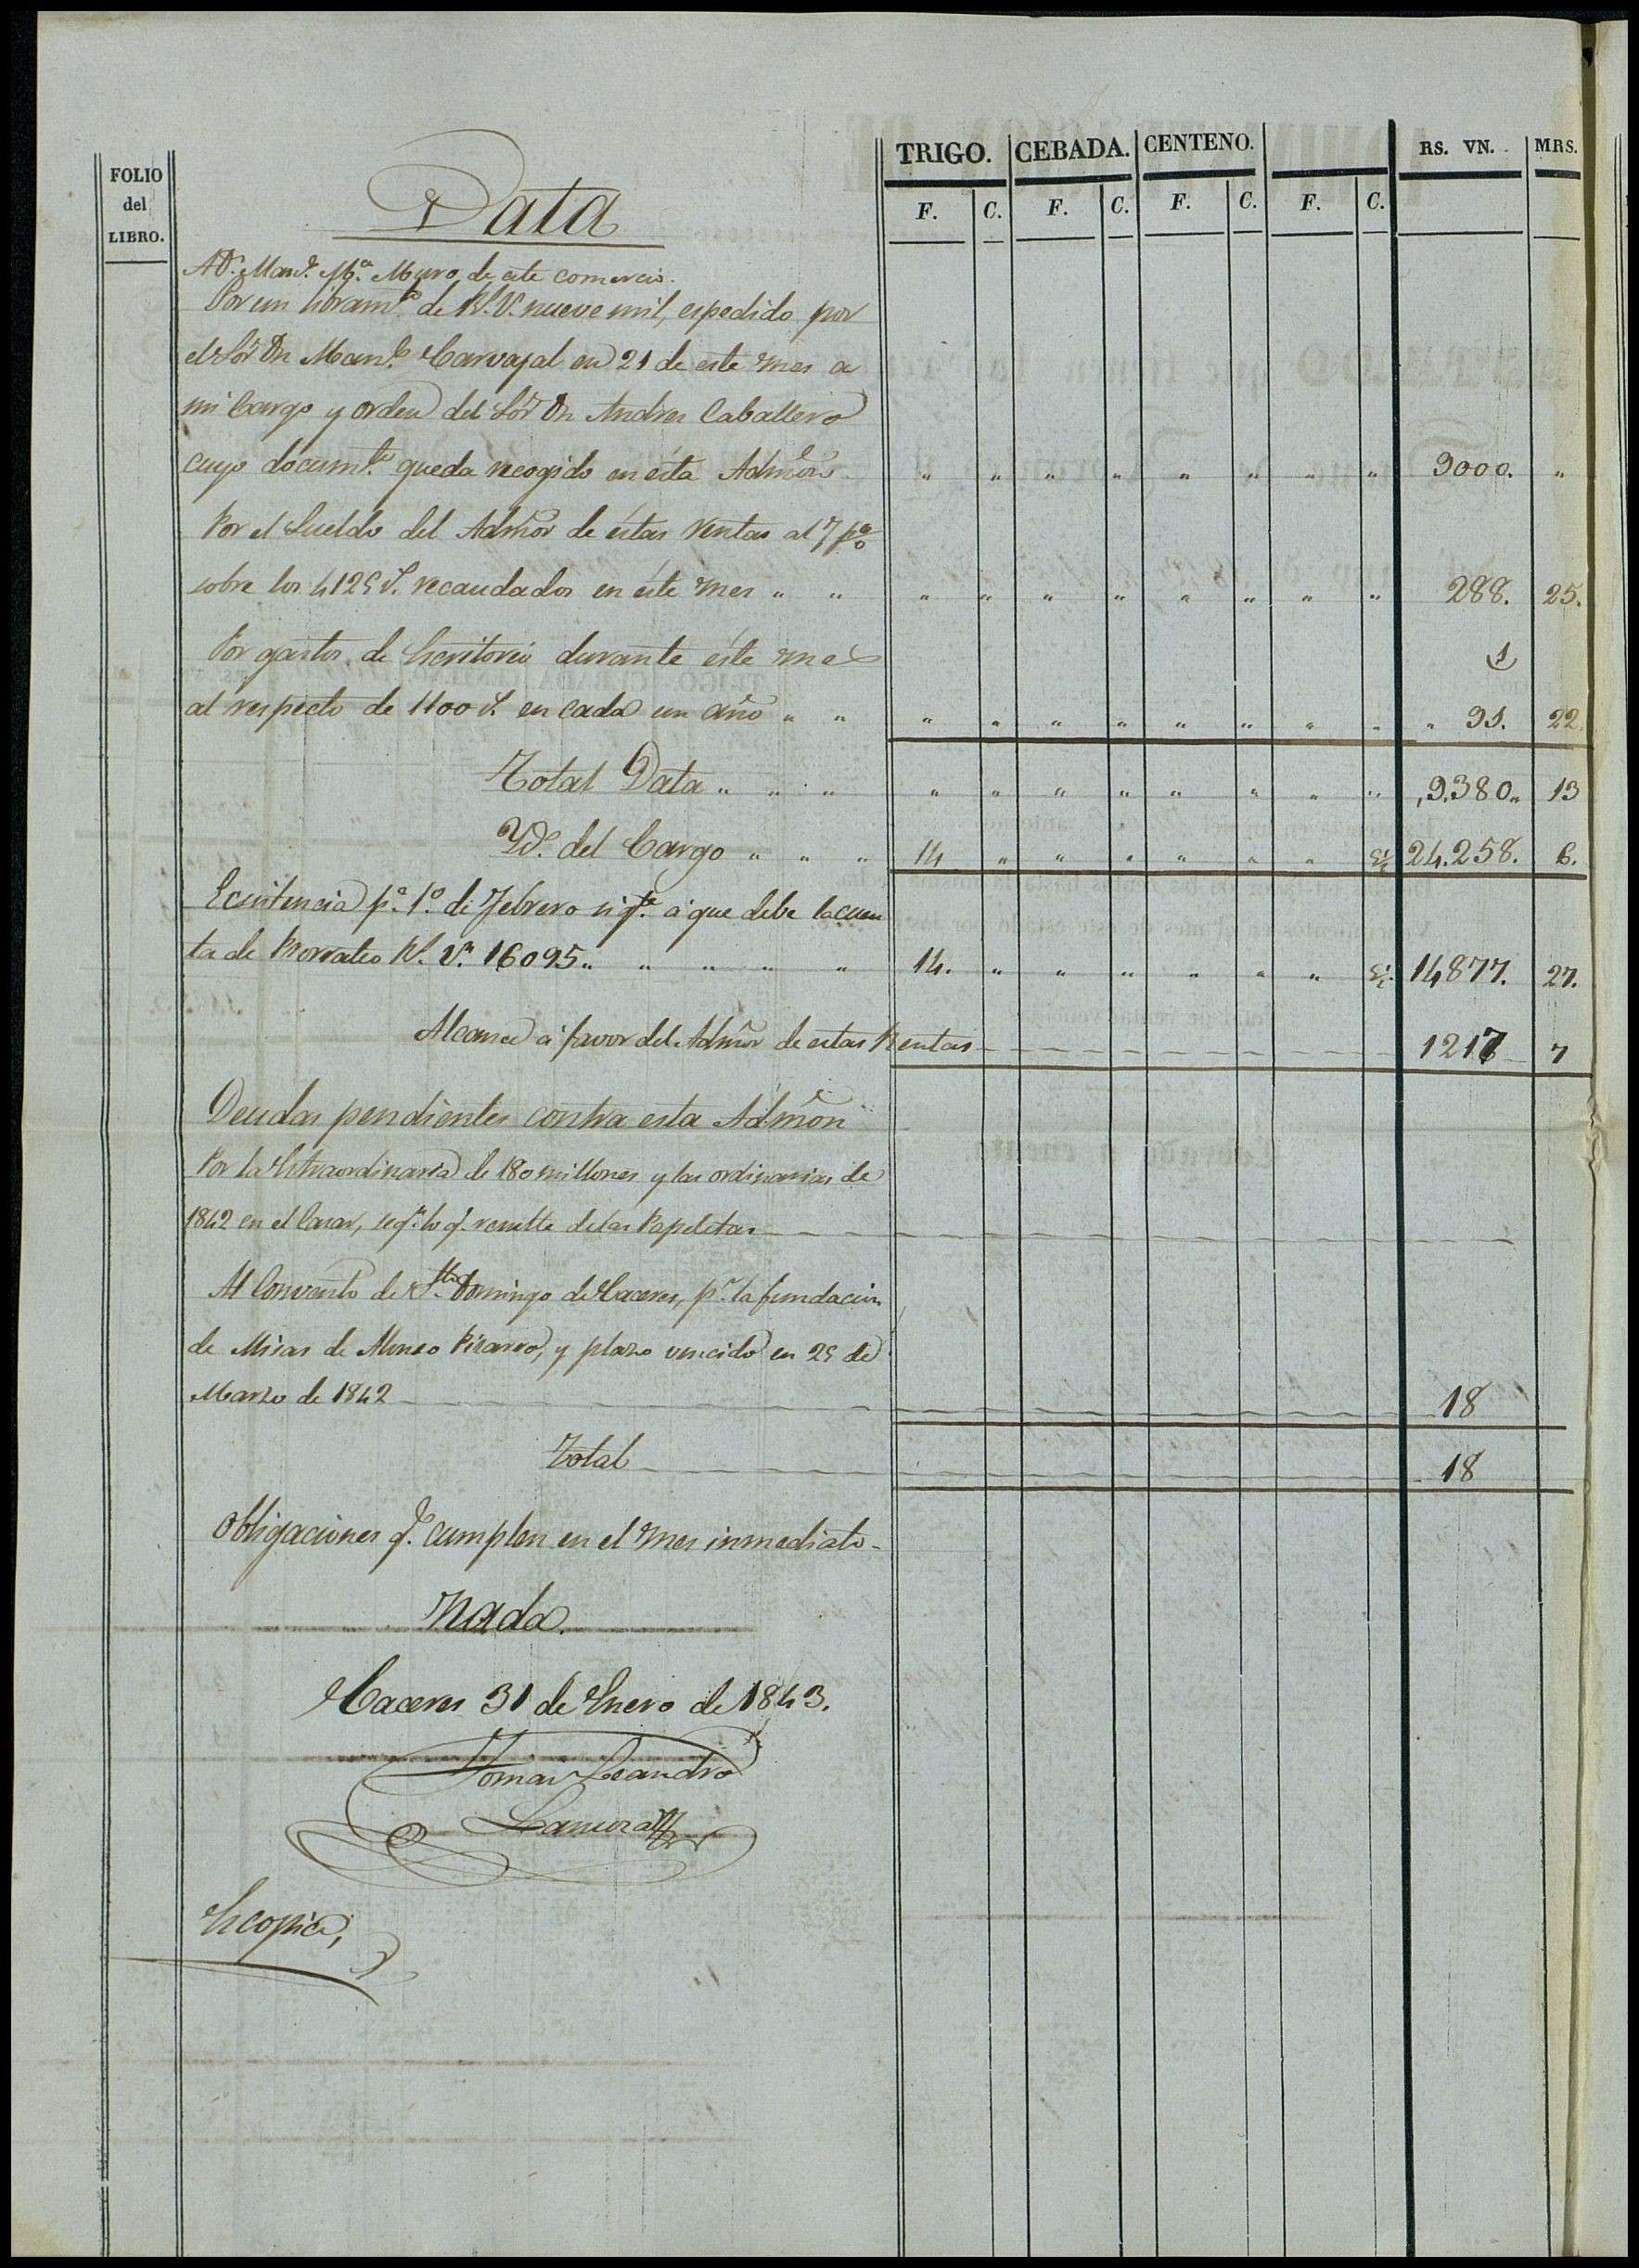 FOLIO
del
LIBRO.
TRIGO. CEBADA. CENTENO. RS. VN. MRS.
F. C. F. C. F. C. F. C.
Data
A Dn. Manl. Ma. Muro de este comercio.
Por un libramto. de Rs. Vn. nueve mil, espedido por
el Sor. Dn Manl. Carvajal en 21 de este mes a
mi Cargo y orden del Sor Dn Andres Caballero
cuyo documto. queda recogido en ésta Admon " " " " " " " " 9000. "
Por el Sueldo del Admor de éstas Rentas al 7 p%
sobre los 4125 rs. recaudados en éste mes " " " " " " " " " " 288. 25.
Por gastos de Escritorio durante éste mes
1
al respecto de 1100 rs. en cada un año " " " " " " " " " " " 91. 22.
Total Data " " " " " " " " " " " 9.380. 13
Yd. del Cargo " " " 14 " " " " " " 24.258. 6.
Ecsistencia pa. 1o. de Febrero sigte. á que debe la cuen
ta de Morateo Rs. Vn. 16095 " " " " " 14. " " " " " " 14877. 27.
Alcance á favor del Admor de estas Rentas 1217 7
Deudas pendientes contra esta Admon
Por la Extraordinaria de 180 millones y las ordinarias de
1842 en el Casar, segn. lo q. resulte de las Papeletas
Al Convento de Sto. Domingo de Caceres, pr. la fundacion
de Misas de Alonso Pizarro, y plazo vencido en 25 de
Marzo de 1842 18
Total 18
Obligaciones qe. cumplen en el mes inmediato.
Nada.
Caceres 31 de Enero de 1843.
Tomas Leandro
Es copia,